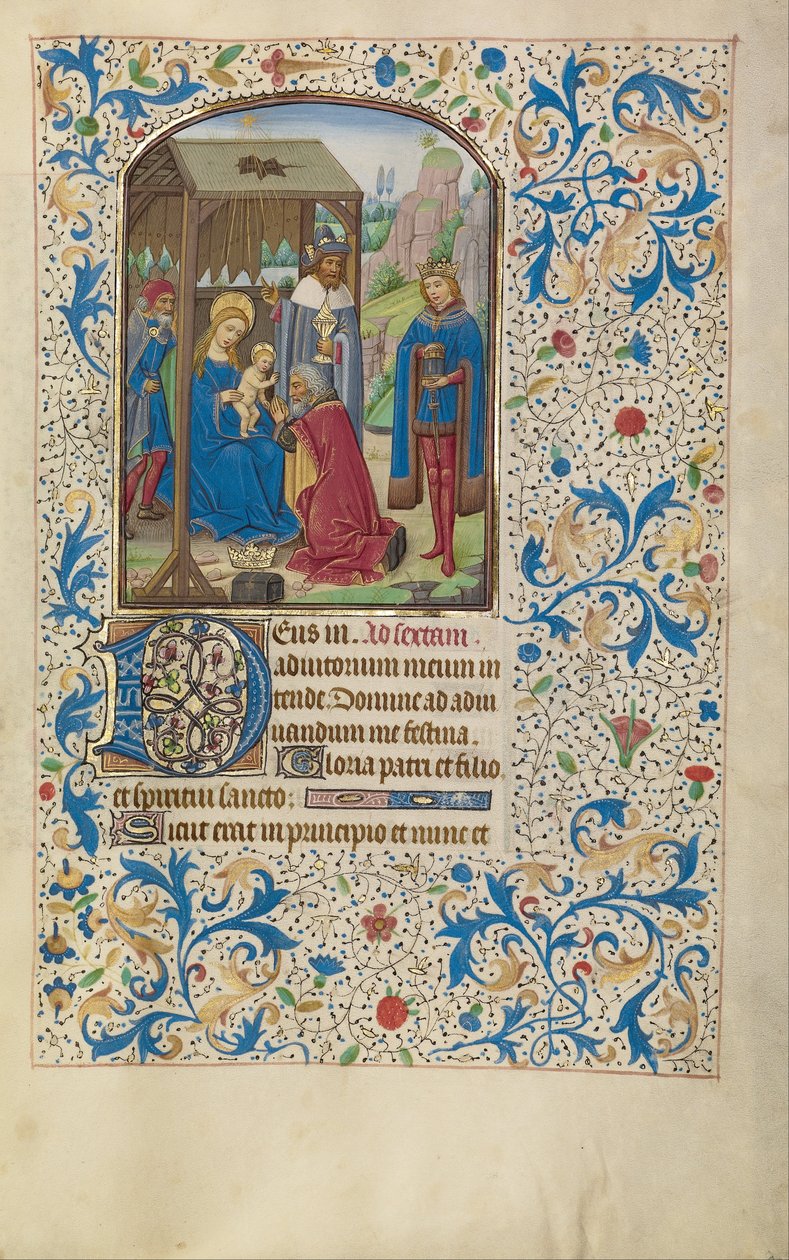 Deus in. Ad sextam.
adiutorium meum in
tende. Domine ad adiu
uandum me festina.
Gloria patri et filio
et spiritui sancto:
Sicut erat in principio et nunc et